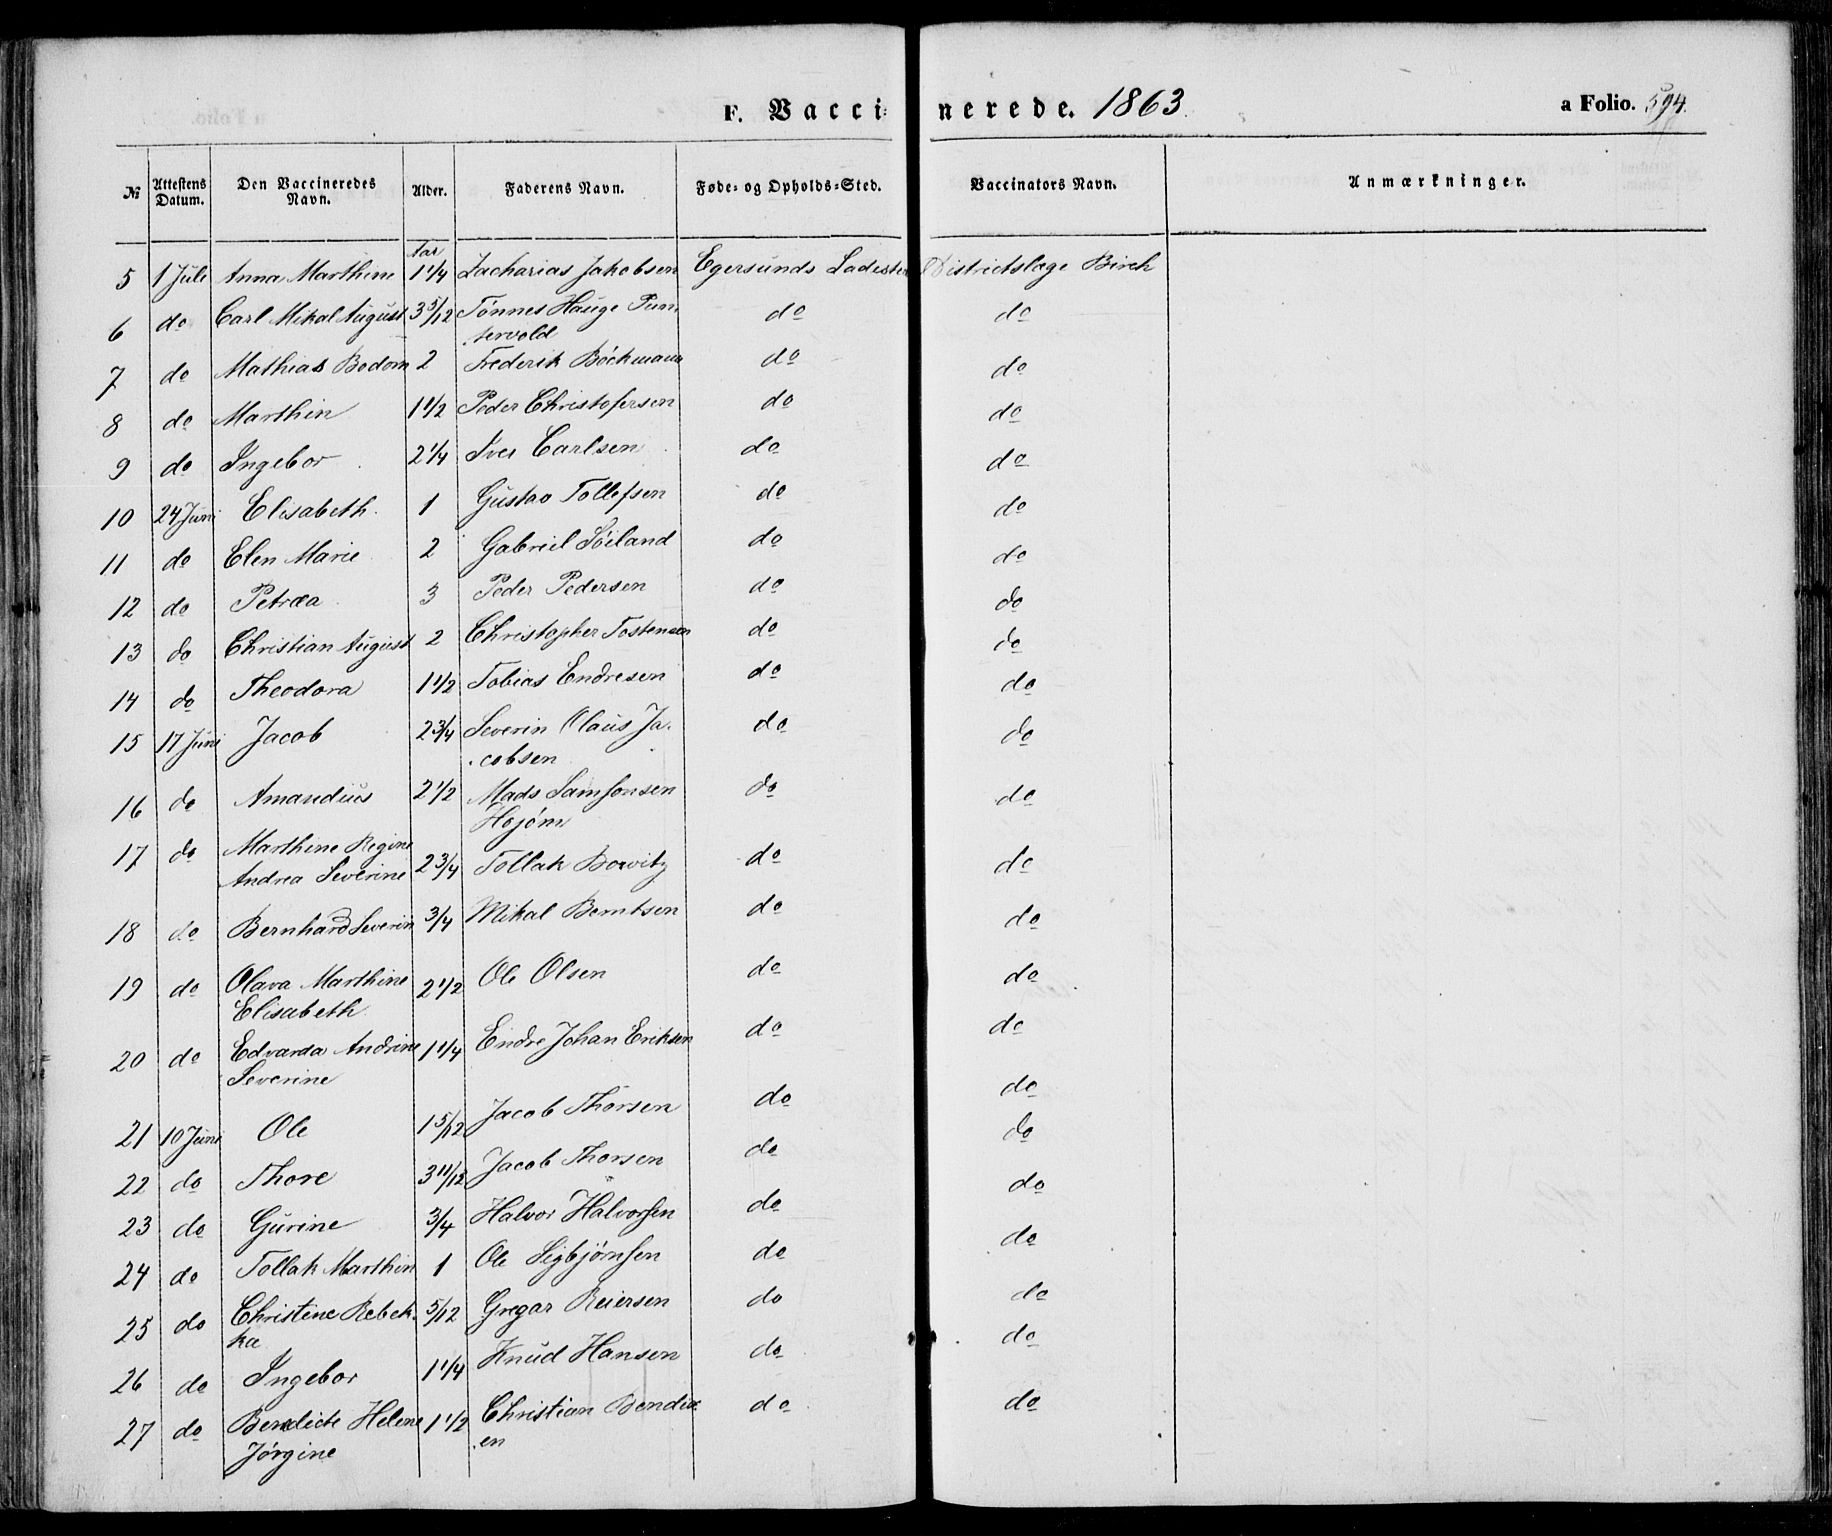 F. Vaccinerede. 1863.
a Folio. 594.
№ Attestens Datum. Den Vaccineredes Navn. Alder. Faderens Navn. Føde- og Opholds-Sted. Vaccinators Navn. Anmærkninger.
Aar
5 1 Juli Anna Marthine 1 1/4 Zacharias Jakobsen Egersunds Ladested Districtslæge Birch
6 do Carl Mikal August 3 5/12 Tønnes Hauge Pun- do do
tervold
7 do Mathias Bodom 2 Frederik Bøckmann do do
8 do Marthin 1 1/2 Peder Christofersen do do
9 do Ingebor 2 1/4 Iver Carlsen do do
10 24 Juni Elisabeth 1 Gustav Tollefsen do do
11 do Elen Marie 2 Gabreil Søiland do do
12 do Petræa 3 Peder Pedersen do do
13 do Christian August 2 Christopher Tostensen do do
14 do Theodora 1 1/2 Tobias Endresen do do
15 17 Juni Jacob 2 3/4 Severin Olaus Ja- do do
cobsen
16 do Amandus 2 1/2 Mads Samsonsen do do
17 do Marthine Regine
Andrea Severine 2 3/4 Tollak Bowitz do do
18 do Bernhard Severin 3/4 Mikal Berntsen do do
19 do Olava Marthine 2 1/2 Ole Olsen do do
Elisabeth
20 do Edvarda Andrine 1 1/4 Endre Johan Eriksen do do
Severine
21 10 Juni Ole 1 5/12 Jacob Thorsen do do
22 do Thore 3 11/12 Jacob Thorsen do do
23 do Gurine 3/4 Halvor Halvorsen do do
24 do Tollak Marthin 1 Ole Sigbjørnsen do do
25 do Christine Rebek- 5/12 Gregar Reiersen do do
ka
26 do Ingebor 1 1/4 Knud Hansen do do
27 do Benedicte Helene 1 1/2 Christian Bendix do do
Jørgine en